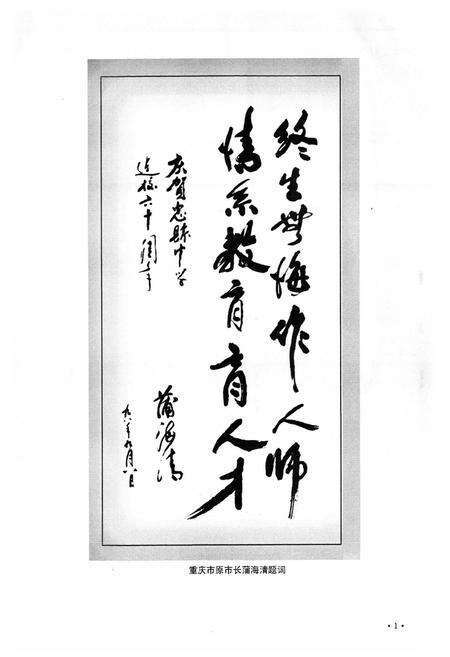 终生无悔作人师
情系教育育人才
庆贺忠县中学
建校六十周年
蒲海清
九八年九月八日
重庆市原市长蒲海清题词
·1·